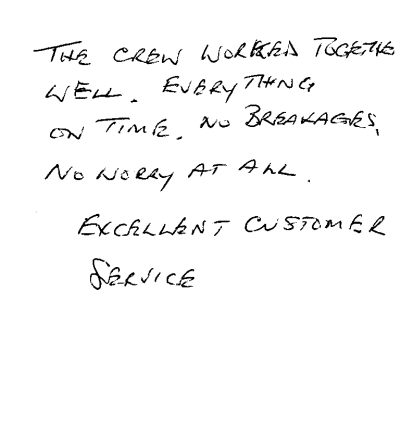 THE CREW WORKED TOGETHE
WELL. EVERYTHNG
ON TIME. NO BREAKAGES,
NO WORRY AT ALL.
EXCELLENT CUSTOMER
SERVICE